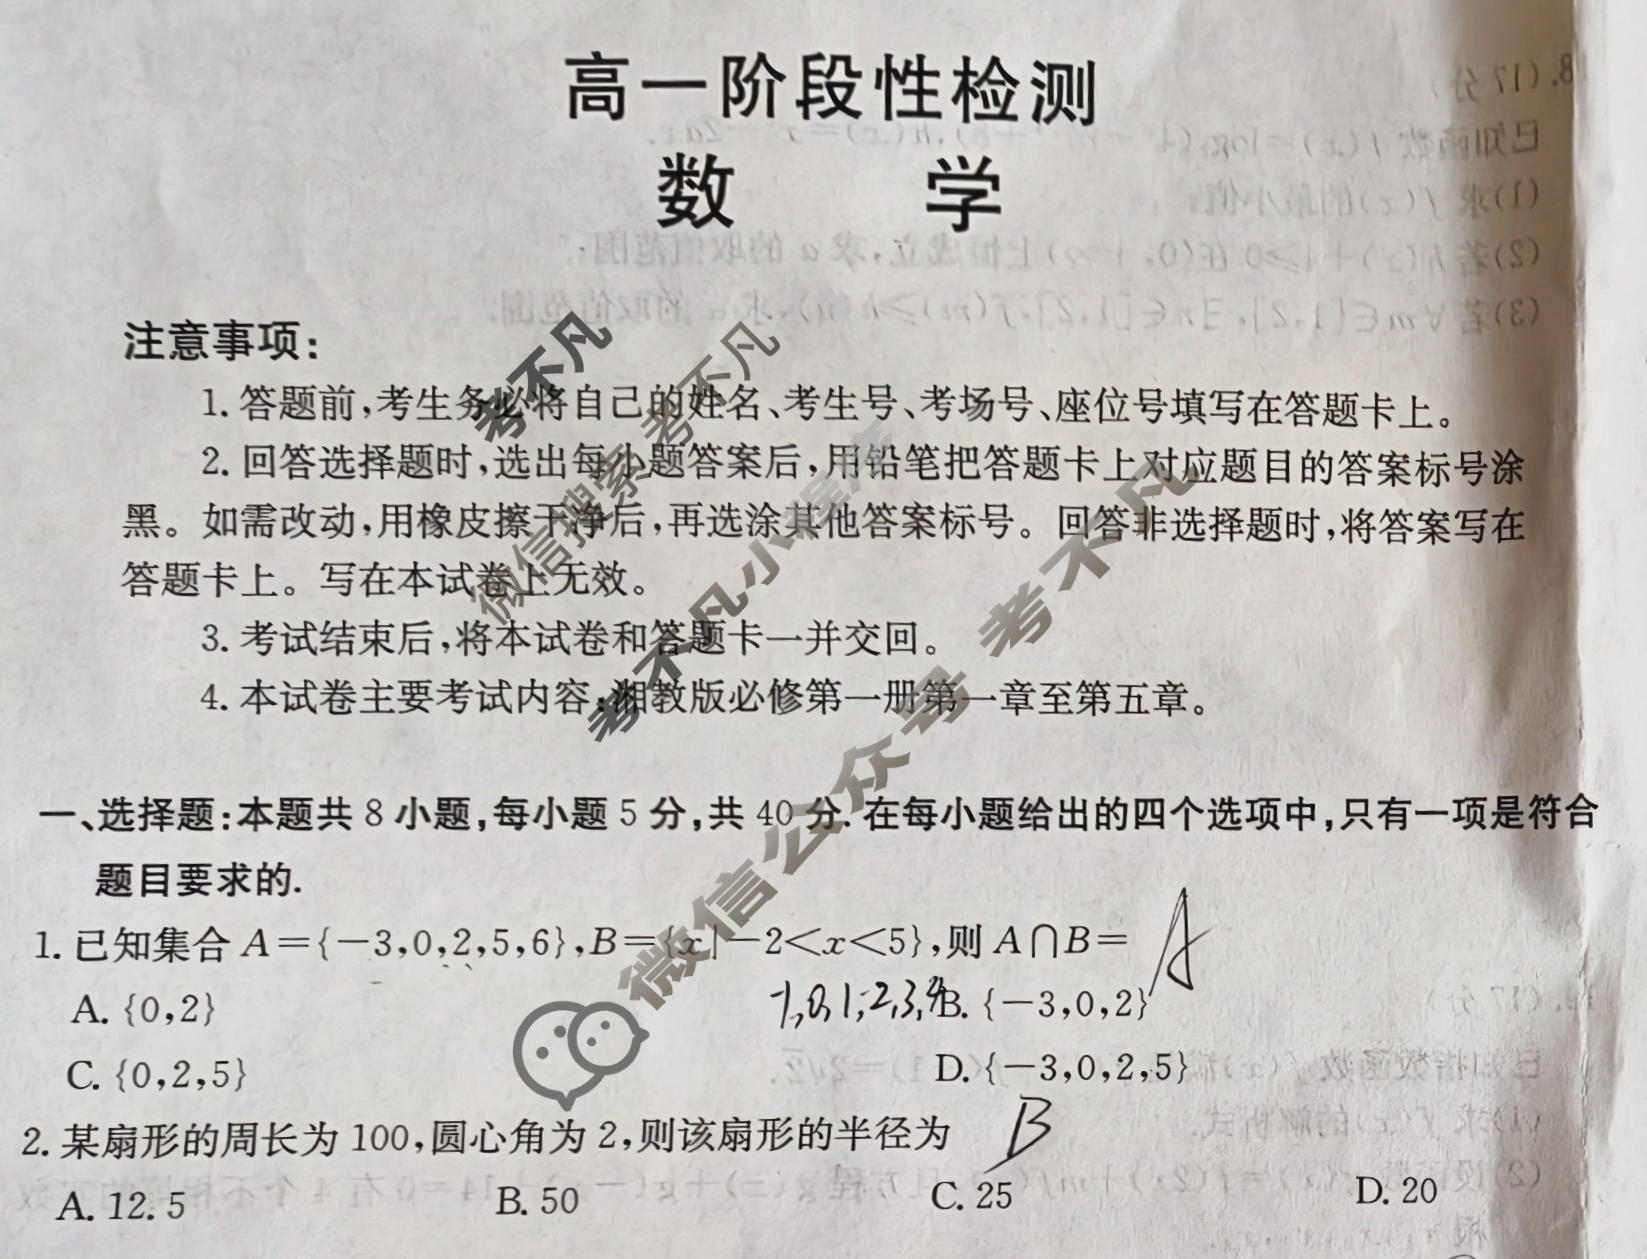 高一阶段性检测
数 学
注意事项:
1. 答题前,考生务必将自己的姓名、考生号、考场号、座位号填写在答题卡上。
2. 回答选择题时,选出每小题答案后,用铅笔把答题卡上对应题目的答案标号涂
黑。如需改动,用橡皮擦干净后,再选涂其他答案标号。回答非选择题时,将答案写在
答题卡上。写在本试卷上无效。
3. 考试结束后,将本试卷和答题卡一并交回。
4. 本试卷主要考试内容:湘教版必修第一册第一章至第五章。
一、选择题:本题共 8 小题,每小题 5 分,共 40 分. 在每小题给出的四个选项中,只有一项是符合
题目要求的.
1. 已知集合 A={-3,0,2,5,6},B={x|-2<x<5},则 A∩B= A
A. {0,2} -1,0,1,2,3,4 B. {-3,0,2}
C. {0,2,5} D. {-3,0,2,5}
2. 某扇形的周长为 100,圆心角为 2,则该扇形的半径为 B
A. 12. 5 B. 50 C. 25 D. 20
考不凡
微信搜索 考不凡
考不凡小程序
微信公众号 考不凡